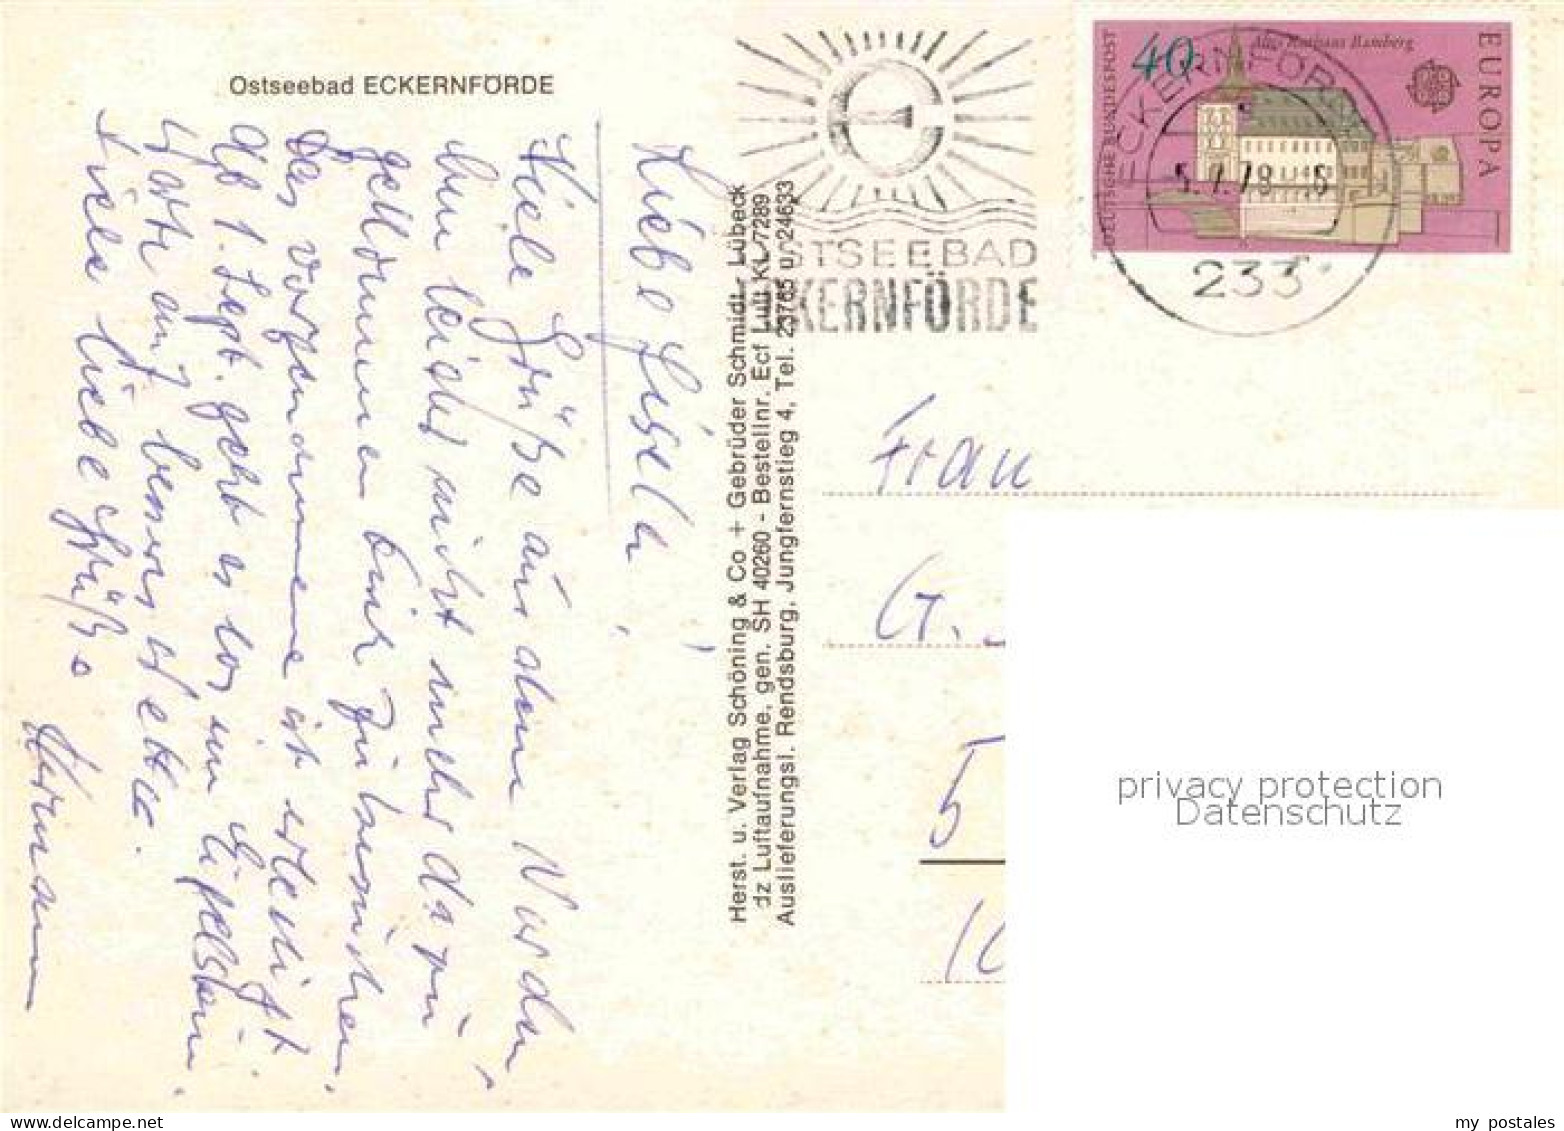 Ostseebad ECKERNFÖRDE
Liebe Gisela,
Viele Grüße aus dem Norden,
bin leider nicht mehr dazu
gekommen Euch zu besuchen.
Das vorgenommene ist erledigt.
Ab 1. Sept. geht es los im
Worte auf
Viele liebe Grüße
Hermann
Herst. u. Verlag Schöning & Co + Gebrüder Schmidt - Lübeck
dz Luftaufnahme, gen. SH 40260 - Bestellnr. Ecf Luft KL 7289
Auslieferungsl. Rendsburg, Jungfernstieg 4, Tel. 23765 u. 24633
OSTSEEBAD
ECKERNFÖRDE
40
Altes Rathaus Bamberg
DEUTSCHE BUNDESPOST
EUROPA
ECKERNFÖRDE
5.7.78
233
Frau
G.
5
privacy protection
Datenschutz
my postales